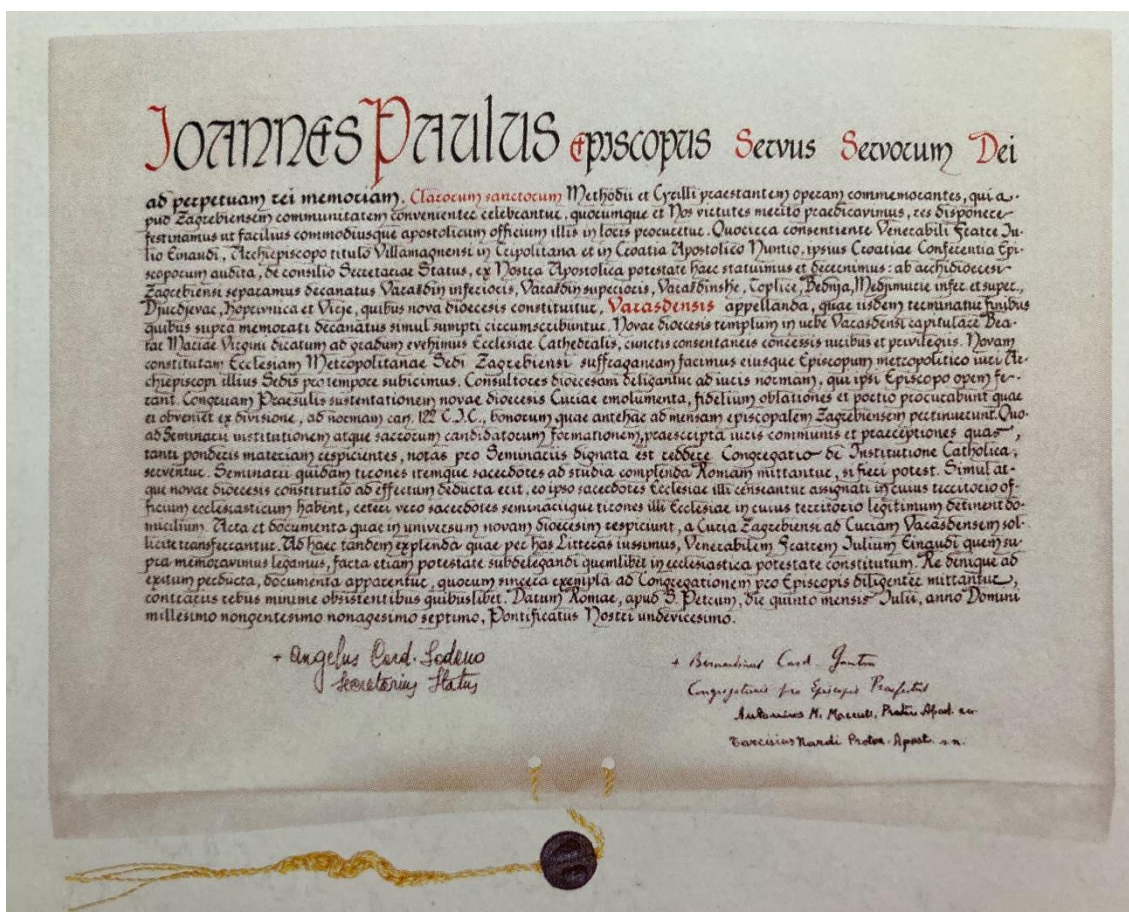 IOANNES PAULUS Episcopus Servus Servorum Dei
ad perpetuam rei memoriam. Clarorum sanctorum Methodii et Cyrilli praestantem operam commemorantes, qui a-
pud Zagrebiensem communitatem convenienter celebrantur, quorumque et Nos virtutes merito praedicavimus, res disponere
festinamus ut facilius commodiusque apostolicum officium illis in locis procuretur. Quocirca consentiente Venerabili Fratre Iu-
lio Einaudi, Archiepiscopo titulo Villamagnensi in Tripolitana et in Croatia Apostolico Nuntio, ipsius Croatiae Conferentia Epi-
scoporum audita, de consilio Secretariae Status, ex Nostra Apostolica potestate haec statuimus et decernimus: ab archidioecesi
Zagrebiensi separamus decanatus Varaždin inferioris, Varaždin superioris, Varaždinske, Toplice, Bednja, Medjimurie infer. et super.,
Djurdjevac, Koprivnica et Virje, quibus nova dioecesis constituitur, Varasdensis appellanda, quae iisdem terminatur finibus
quibus supra memorati decanatus simul sumpti circumscribuntur. Novae dioecesis templum in urbe Varasdensi capitulare Bea-
tae Mariae Virgini dicatum ad gradum evehimus Ecclesiae Cathedralis, cunctis consentaneis concessis iuribus et privilegiis. Novam
constitutam Ecclesiam Metropolitanae Sedi Zagrebiensi suffraganeam facimus eiusque Episcopum metropolitico iuri Ar-
chiepiscopi illius Sedis pro tempore subicimus. Consultores dioecesani deligantur ad iuris normam, qui ipsi Episcopo opem fe-
rant. Congruam Praesulis sustentationem novae dioecesis Curiae emolumenta, fidelium oblationes et portio procurabunt quae
ei obveniet ex divisione, ad normam can. 122 C.I.C., bonorum quae antehac ad mensam episcopalem Zagrebiensem pertinuerunt. Quo
ad Seminarii institutionem atque sacrorum candidatorum formationem, praescripta iuris communis et praeceptiones quas,
tanti ponderis materiam respicientes, notas pro Seminariis dignata est reddere Congregatio de Institutione Catholica,
serventur. Seminarii quidam tirones itemque sacerdotes ad studia complenda Romam mittantur, si fieri potest. Simul at-
que novae dioecesis constitutio ad effectum deducta erit, eo ipso sacerdotes Ecclesiae illi censeantur assignati in cuius territorio of-
ficium ecclesiasticum habent, ceteri vero sacerdotes seminariique tirones illi Ecclesiae in cuius territorio legitimum detinent do-
micilium. Acta et documenta quae in universum novam dioecesim respiciunt, a Curia Zagrebiensi ad Curiam Varasdensem sol-
licite transferantur. Ad haec tandem explenda quae per has Litteras iussimus, Venerabilem Fratrem Iulium Einaudi quem su-
pra memoravimus legamus, facta etiam potestate subdelegandi quemlibet in ecclesiastica potestate constitutum. Re denique ad
exitum perducta, documenta apparentur, quorum sincera exempla ad Congregationem pro Episcopis diligenter mittantur,
contrariis rebus minime obsistentibus quibuslibet. Datum Romae, apud S. Petrum, die quinto mensis Iulii, anno Domini
millesimo nongentesimo nonagesimo septimo, Pontificatus Nostri undevicesimo.
+ Angelus Card. Sodano
Secretarius Status
+ Bernardinus Card. Gantin
Congregationis pro Episcopis Praefectus
Antoninus M. Proton. Apost. s.n.
Tarcisius Nardi Proton. Apost. s.n.